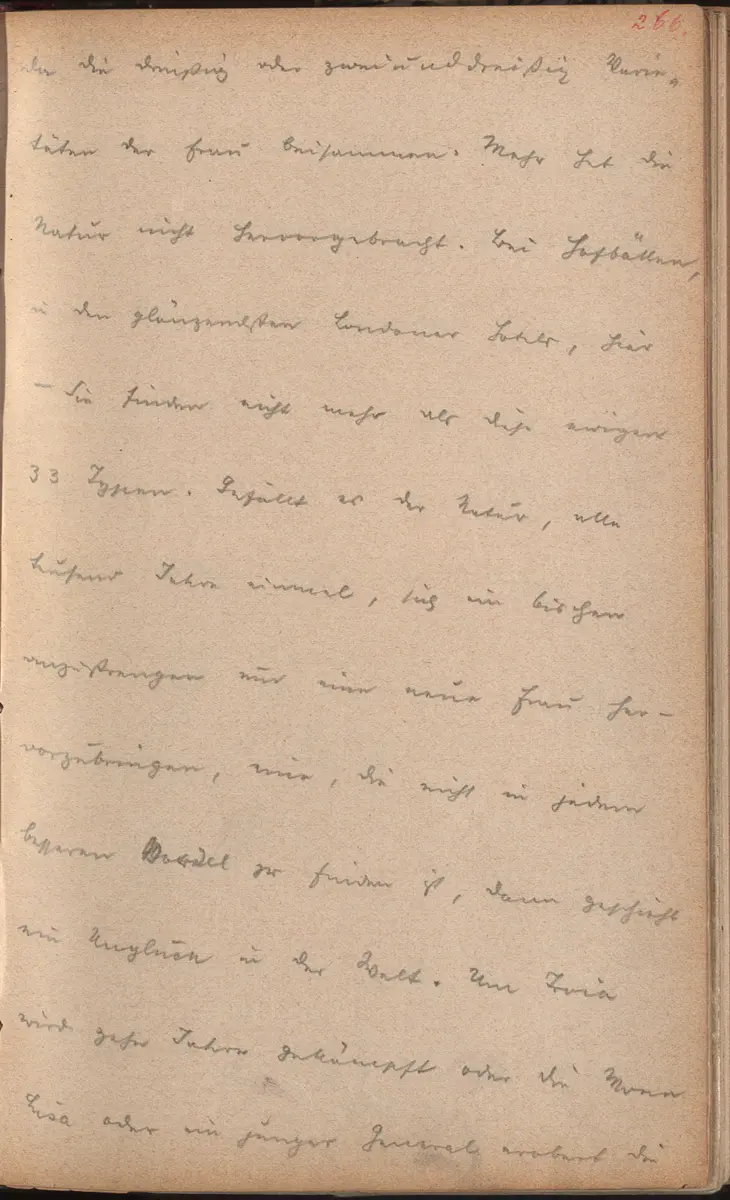 266.
der die dreißig oder zweiunddreißig Varie-
täten der Frau beisammen. Mehr hat die
Natur nicht hervorgebracht. Bei Hofbällen,
in den glänzendsten Londoner Hotels, hier
– Sie finden nicht mehr als diese ewigen
33 Typen. Gefällt es der Natur, alle
tausend Jahre einmal, sich ein bischen
anzustrengen und eine neue Frau her-
vorzubringen, eine, die nicht in jedem
besseren Bordell zu finden ist, dann geschieht
ein Unglück in der Welt. Um Troia
wird zehn Jahre gekämpft oder die Mona
Lisa oder ein junger General erobert die